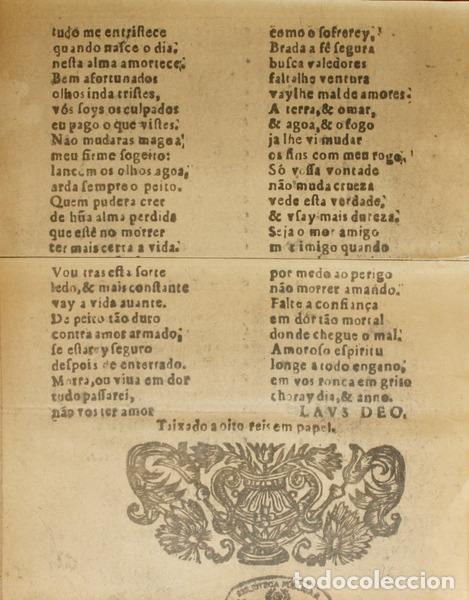 tudo me entristece
quando nasce o dia,
nesta alma amortece,
Bem afortunados
olhos inda tristes,
vós soys os culpados
eu pago o que vistes.
Não mudaras magoa,
meu firme sogeito:
lancem os olhos agoa,
arda sempre o peito.
Quem pudera crer
de hũa alma perdida
que esté no morrer
ter mais certa a vida.
Vou tras esta sorte
ledo, & mais constante
vay a vida auante.
De peito tão duro
contra amor armado,
se estarey seguro
despois de enterrado.
Morra, ou viua em dor
tudo passarei,
não vos ter amor
como o sofrerey,
Brada a fê segura
busca valedores
faltalhe ventura
vaylhe mal de amores.
A terra, & o mar,
& agoa, & o fogo
ja lhe vi mudar
os fins com meu rogo,
Só vossa vontade
não muda crueza
vede esta verdade,
& vsay mais dureza.
Seja o mor amigo
imigo quando
por medo ao perigo
não morrer amando.
Falte a confiança
em dór tão mortal
donde chegue o mal.
Amoroso espiritu
longe a todo engano,
em vos ronca em grito
choray dia, & anno.
LAVS DEO.
Taixado a oito reis em papel.
BIBLIOTECA
todocoleccion.net